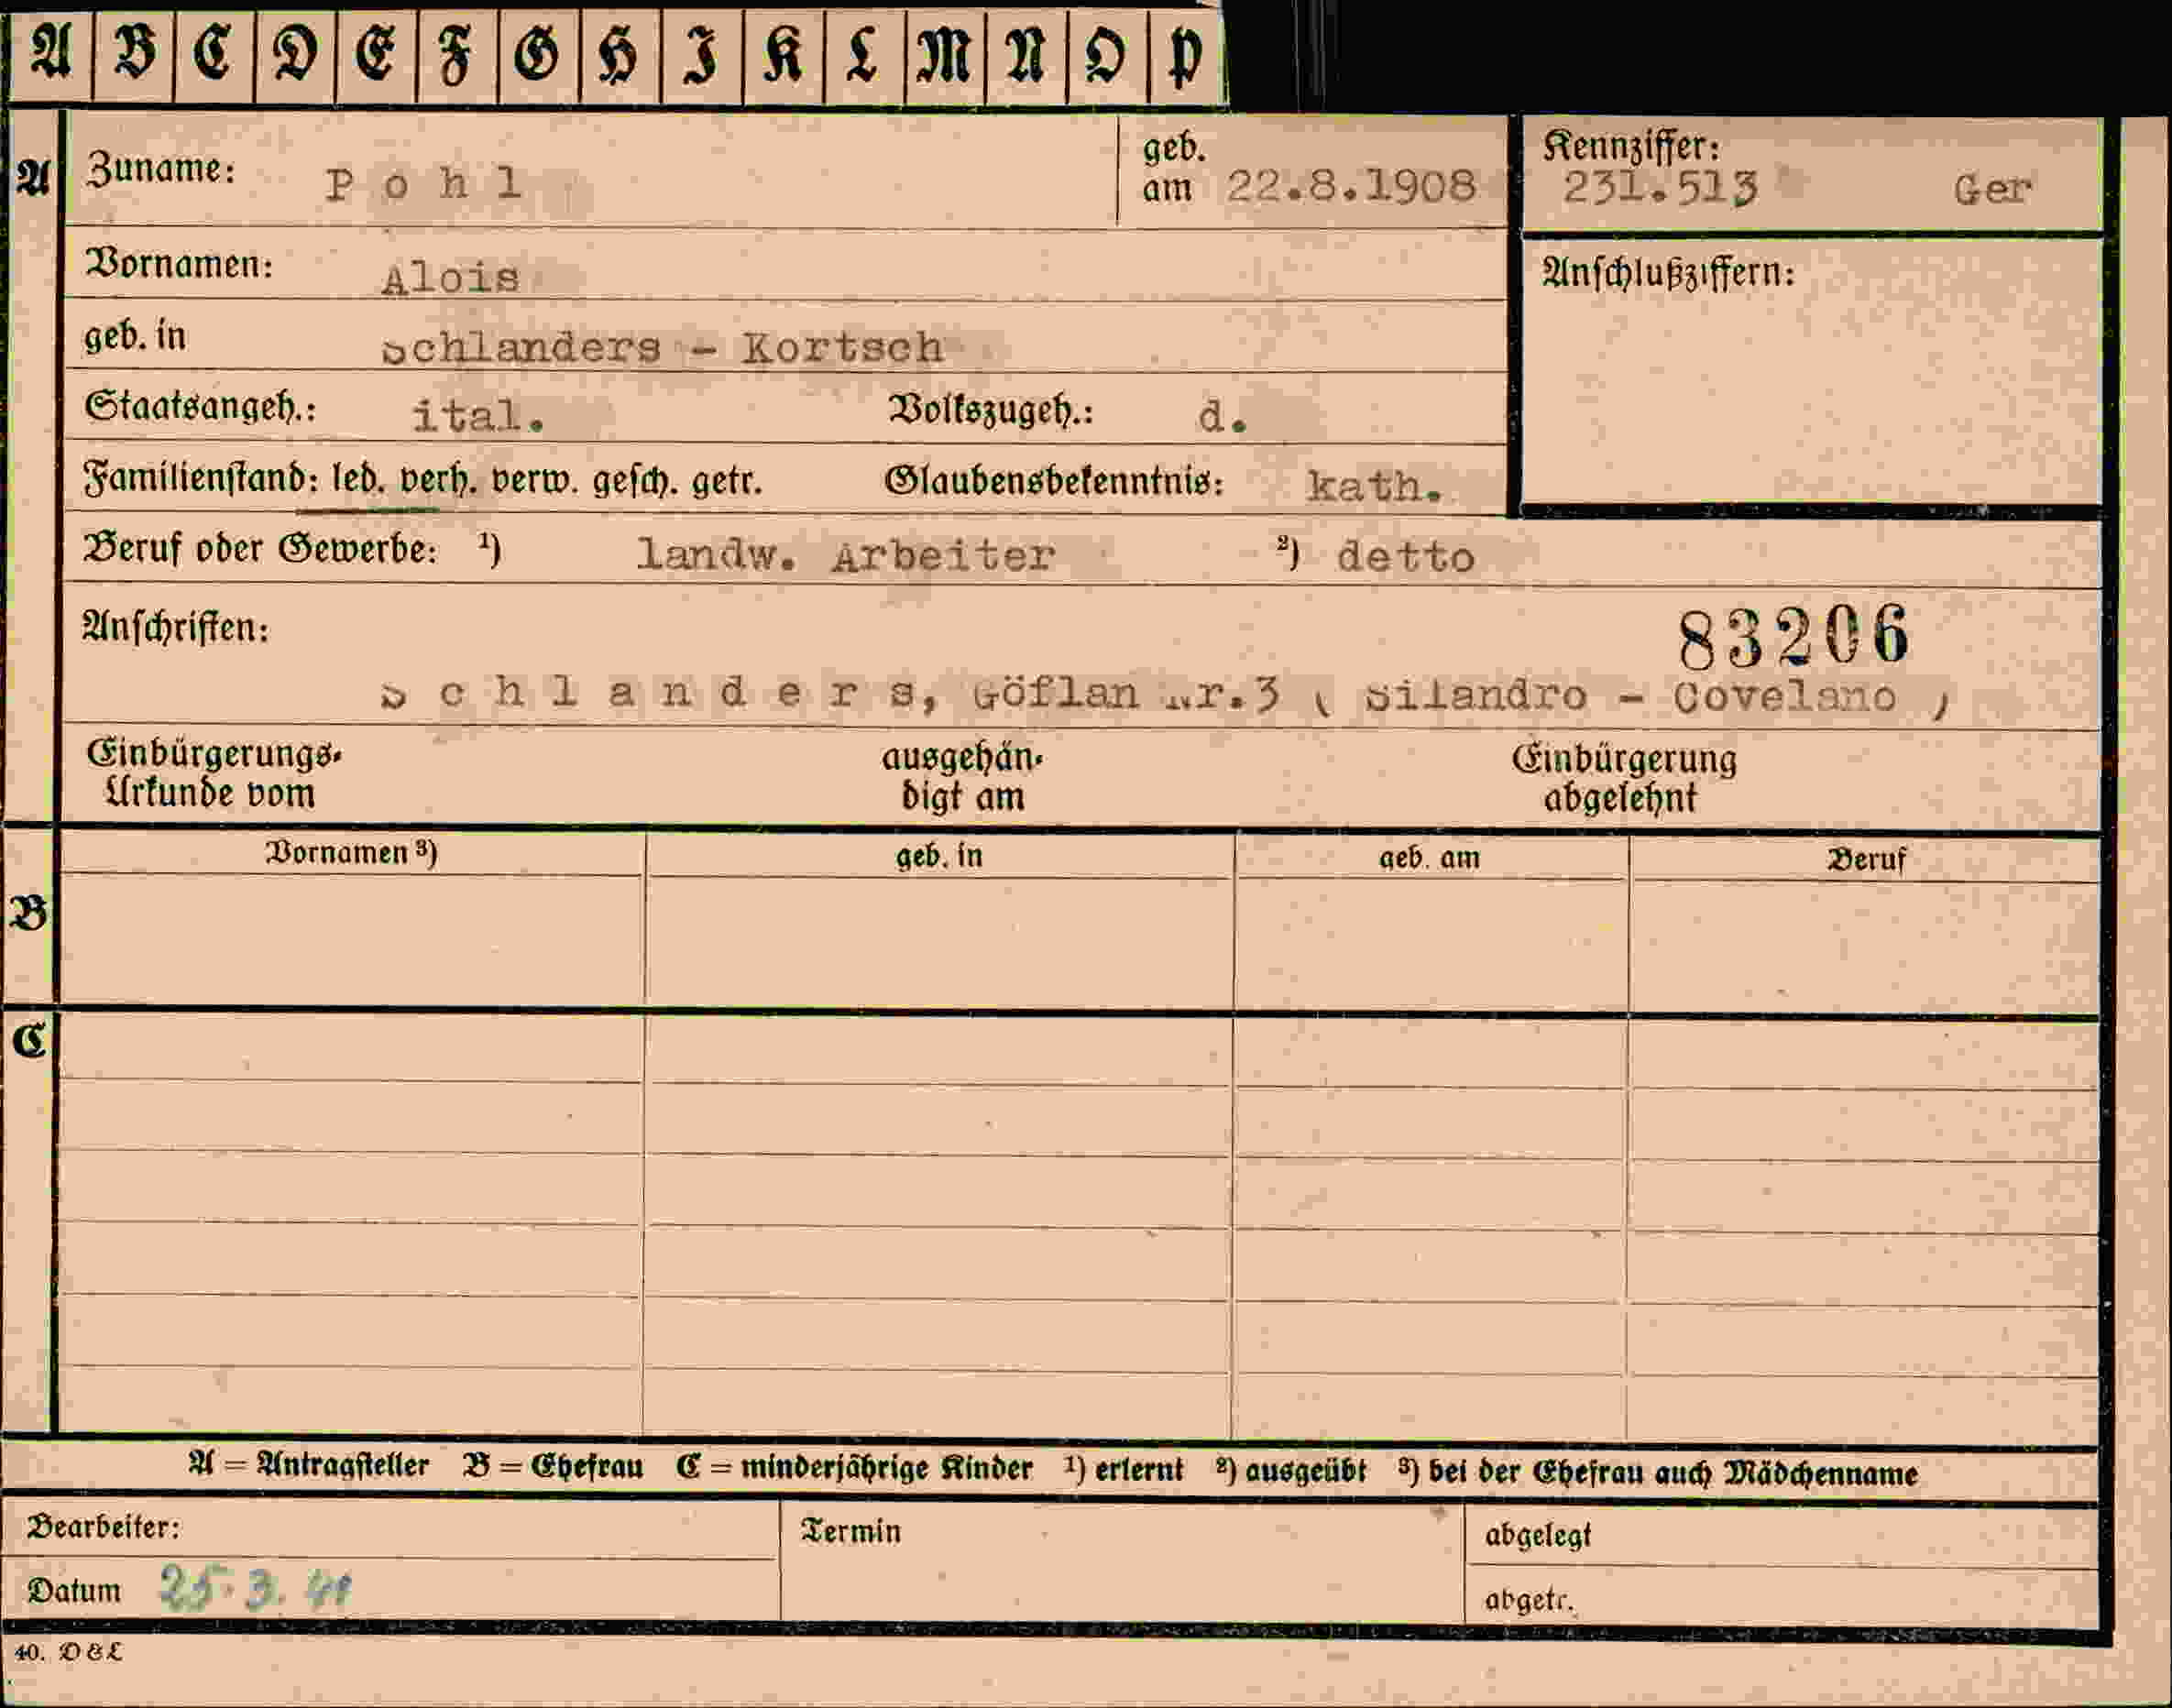 A B C D E F G H I K L M N O P
A Zuname: Pohl geb. am 22.8.1908 Kennziffer: 231.513 Ger
Vornamen: Alois Anschlußziffern:
geb. in Schlanders - Kortsch
Staatsangeh.: ital. Volkszugeh.: d.
Familienstand: led. verh. verw. gesch. getr. Glaubensbekenntnis: kath.
Beruf oder Gewerbe: ¹) landw. Arbeiter ²) detto
Anschriften: 83206
Schlanders, Göflan Nr.3 ( Silandro - Covelano )
Einbürgerungs- ausgehän- Einbürgerung
Urkunde vom digt am abgelehnt
Vornamen ³) geb. in geb. am Beruf
B
C
A = Antragsteller B = Ehefrau C = minderjährige Kinder ¹) erlernt ²) ausgeübt ³) bei der Ehefrau auch Mädchenname
Bearbeiter: Termin abgelegt
Datum 25.3.41 abgetr.
40. D & L